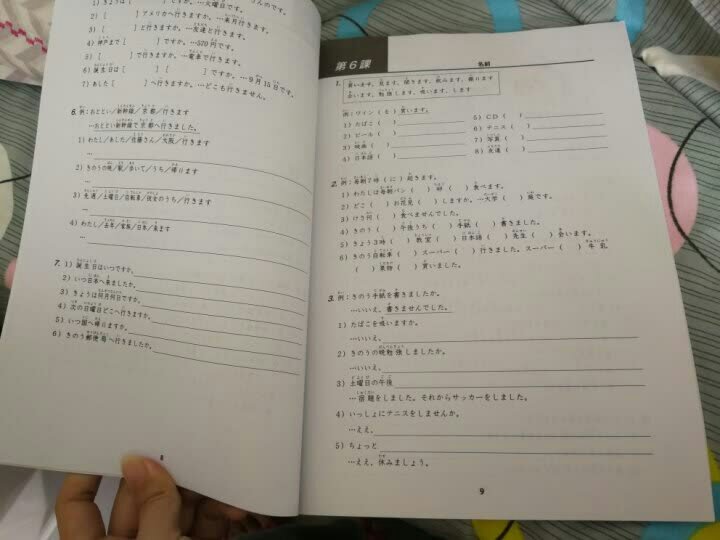 1) きょうは [ ] …火曜日です。
2) [ ] アメリカへ行きますか。…来月行きます。
3) [ ] と行きますか。…友達と行きます。
4) 神戸まで [ ] ですか。…570円です。
5) [ ] で行きますか。…電車で行きます。
6) 誕生日は [ ] [ ] ですか。…9月15日です。
7) あした [ ] へ行きますか。…どこも行きません。
6. 例:おととい/新幹線/京都/行きます
…おととい新幹線で京都へ行きました。
1) わたし/あした/佐藤さん/大阪/行きます
…
2) きのうの晩/駅/歩いて/うち/帰ります
…
3) 先週/土曜日/自転車/彼女のうち/行きます
…
4) わたし/去年/家族/日本/来ます
…
7. 1) 誕生日はいつですか。
2) いつ日本へ来ましたか。
3) きょうは何月何日ですか。
4) 次の日曜日どこへ行きますか。
5) いつ国へ帰りますか。
6) きのう郵便局へ行きましたか。
8
第6課
名前
1. 買います、見ます、聞きます、飲みます、撮ります
会います、勉強します、吸います、します
例:ワイン ( を ) 買います。
1) たばこ ( )
2) ビール ( )
3) 映画 ( )
4) 日本語 ( )
5) CD ( )
6) テニス ( )
7) 写真 ( )
8) 友達 ( )
2. 例:毎朝7時 ( に ) 起きます。
1) わたしは毎朝パン ( ) 卵 ( ) 食べます。
2) どこ ( ) お花見 ( ) しますか。…大学 ( ) 庭です。
3) けさ何 ( ) 食べませんでした。
4) きのう ( ) 午後うち ( ) 手紙 ( ) 書きました。
5) きょう3時 ( ) 教室 ( ) 日本語 ( ) 先生 ( ) 会います。
6) きのう自転車 ( ) スーパー ( ) 行きました。スーパー ( ) 牛乳
( ) 果物 ( ) 買いました。
3. 例:きのう手紙を書きましたか。
…いいえ、書きませんでした。
1) たばこを吸いますか。
…いいえ、
2) きのうの晩勉強しましたか。
…いいえ、
3) 土曜日の午後
…宿題をしました。それからサッカーをしました。
4) いっしょにテニスをしませんか。
…ええ、
5) ちょっと
…ええ、休みましょう。
9